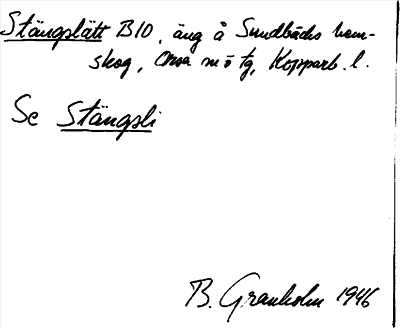 Stängslätt B10, äng å Sundbäcks hem-
skog, Orsa sn o tg, Kopparb. l.
Se Stängsli
B. Granholm 1946